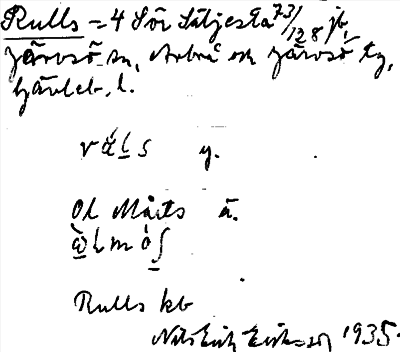 Rulls = 4 Sör Säljesta 73/128 jb,
Järvsö sn, Arbrå och Järvsö tg,
Gävleb. l.
rúls y.
Ol Mårts ä.
Rulls kb
Nils Erik Eriksson 1935.